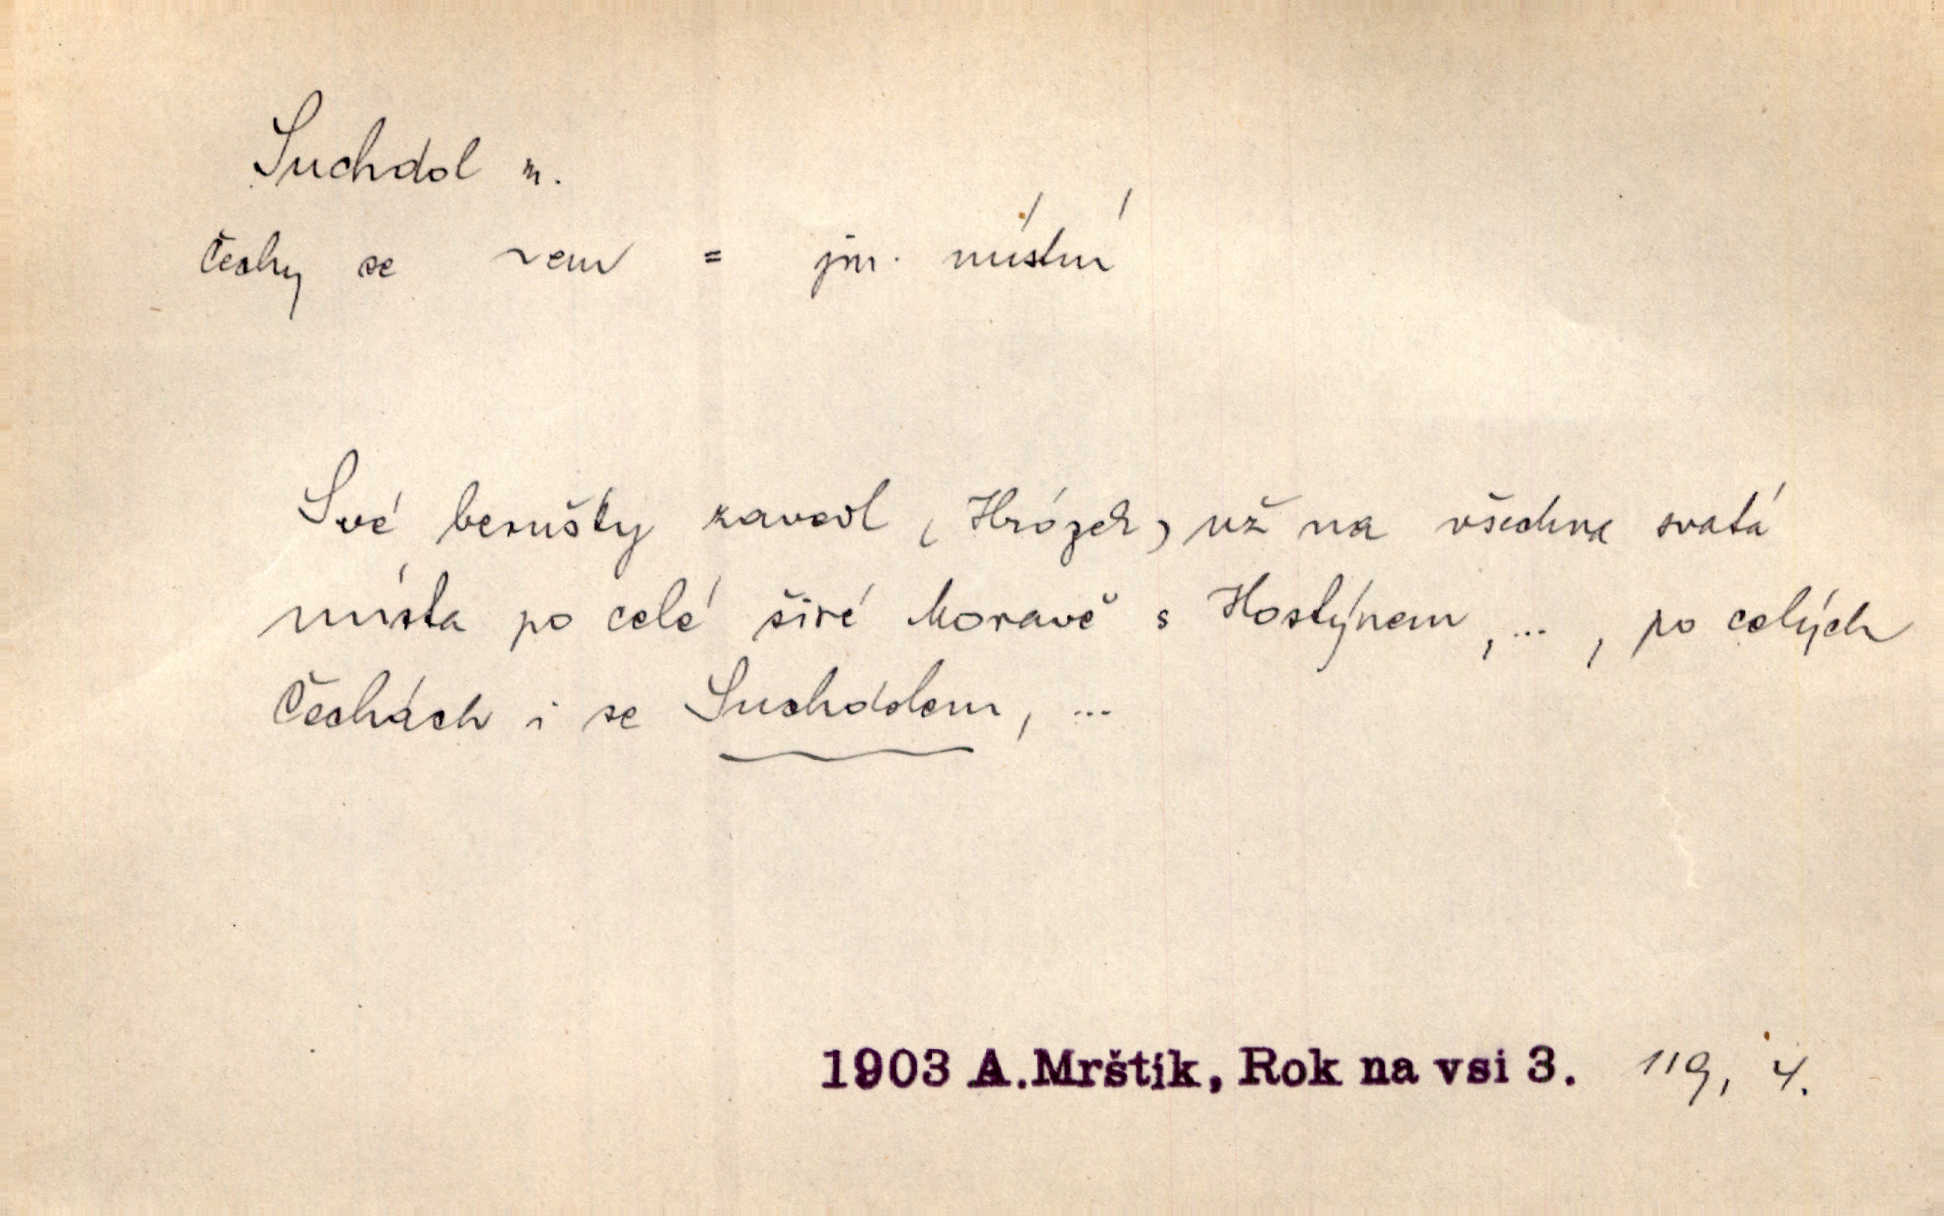 Suchdol m.
Čechy se ~em = jm. místní
Své berušky zavedl (Hrózek) už na všechna svatá
místa po celé širé Moravě s Hostýnem, ..., po celých
Čechách i se Suchdolem, ...
1903 A.Mrštík, Rok na vsi 3. 119, 4.